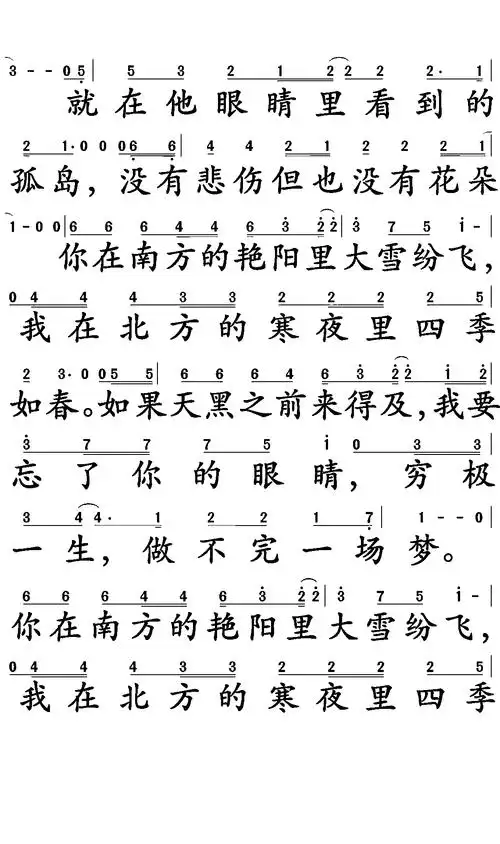 3 - - 0 5 | 5 3 2 1 2 2 2 2· 1
就在他眼睛里看到的
2 1· 0 0 0 6 6 | 4 4 2 1 2 2 2 1
孤岛，没有悲伤但也没有花朵
1 - 0 0 | 6 6 6 4 4 6 3 2 2 | 3 7 5 i -
你在南方的艳阳里大雪纷飞，
0 4 4 4 3 3 2 2 2 2 5
我在北方的寒夜里四季
2 3· 0 0 5 5 | 6 6 6 4 6 3 2 2 i 2
如春。如果天黑之前来得及，我要
3 7 7 7 5 i 0 3 3
忘了你的眼睛，穷极
3 4 4· 1 2 2 1 7 | 1 - - 0 |
一生，做不完一场梦。
6 6 6 4 4 6 3 2 2 | 3 7 5 i -
你在南方的艳阳里大雪纷飞，
0 4 4 4 3 3 2 2 2 2 5
我在北方的寒夜里四季